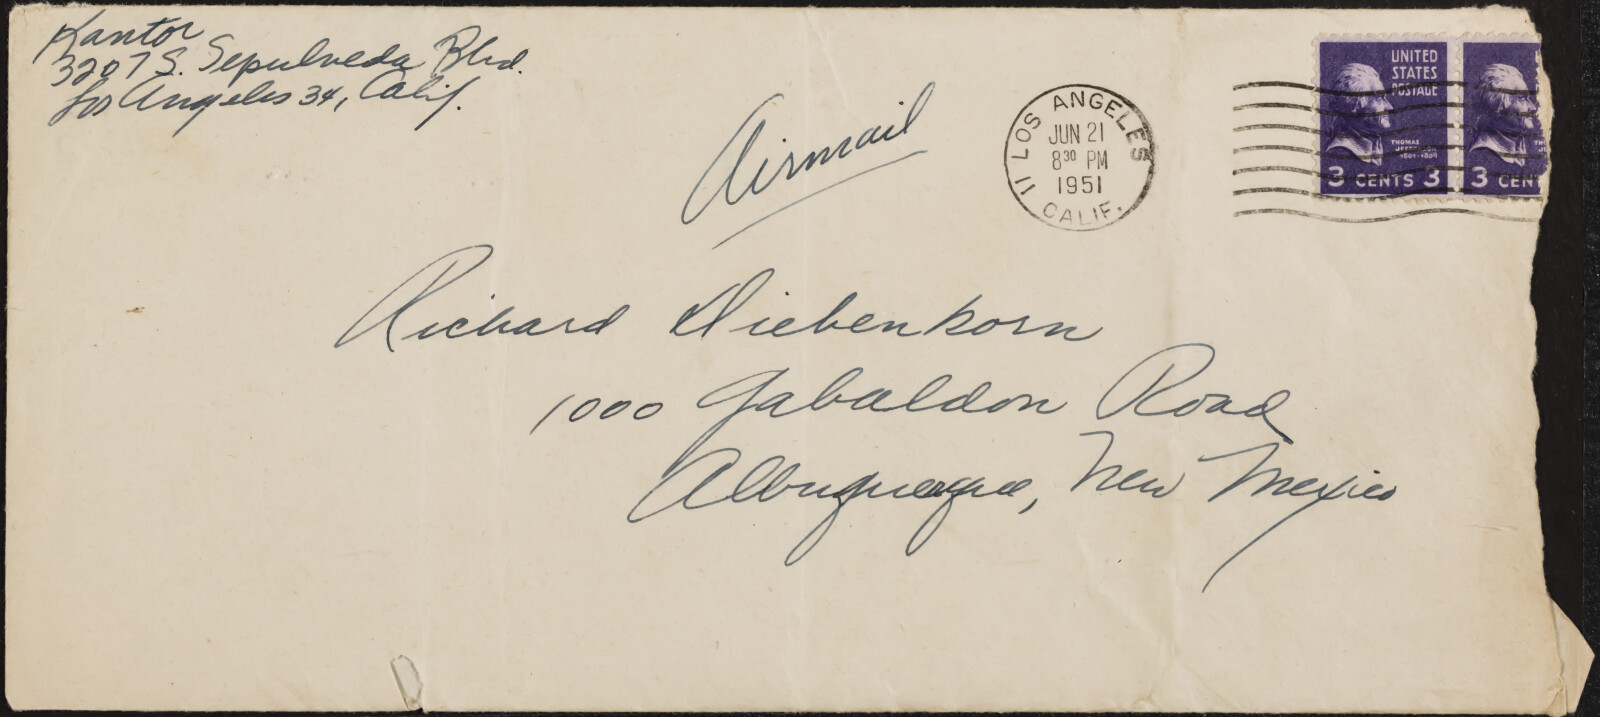 Kantor
3207 S. Sepulveda Blvd.
Los Angeles 34, Calif.
Airmail
LOS ANGELES
JUN 21
8³⁰ PM
1951
11 CALIF.
UNITED
STATES
POSTAGE
THOMAS
JEFFERSON
1801-1809
3 CENTS 3
3 CENT
Richard Diebenkorn
1000 Gabaldon Road
Albuquerque, New Mexico